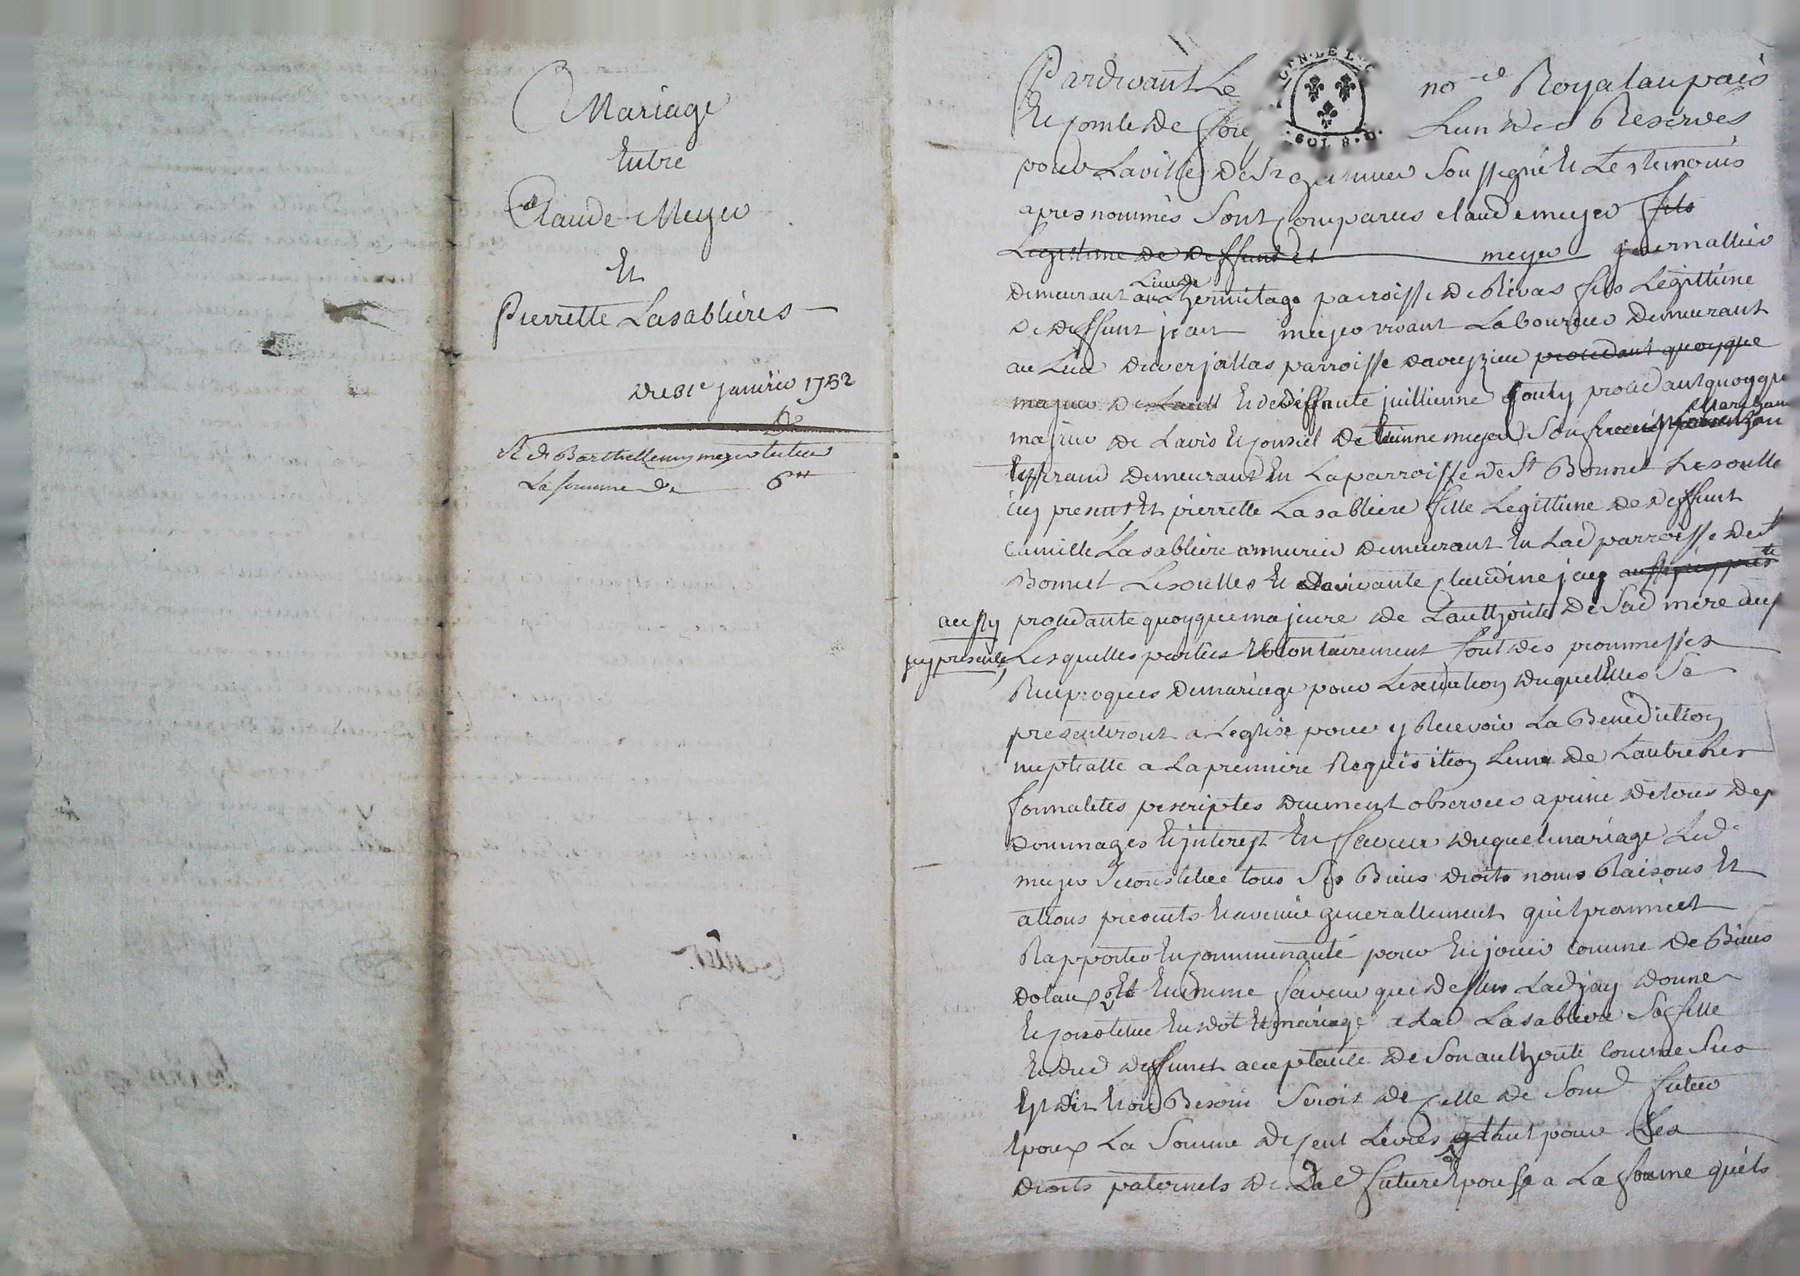 Mariage
Entre
Claude Meyer
Et
Pierrette Lasablieres
Du 31e janvier 1752
R de Barthellemy meyer tuteur
La somme de 6tt
GEN. LE LI
SOL 8 D.
Pardevant Le no.re Royal au païs
Et Comté de Lun des Reservés
pour La ville de soussigné Et Les temoins
apres nommés Sont Comparus claude meyer fils
Legitime de deffunt Et meyer journallier
Demeurant au Lieu de Lhermitage paroisse de Rivas fils Legittime
de deffunt jean meyer vivant Laboureur demeurant
au Lieu de verjallas parroisse daveyzieu procedant quoyque
majeur de Lauth Et de deffunte jullienne procedant quoyque
majeur de Lavis Et Conseil de meyer Son frere marchand
demeurant En La parroisse de St Bonnet Lesoulle
icy present Et pierrette Lasabliere fille Legittime de deffunt
Camille Lasabliere armurier demeurant En Lad parroisse de St
Bonnet Lesoulles Et de vivante Claudine jay aussy icy pnte
aussy
icy presente,
procedante quoyque majeure de Lauthorité de Sad mere
Lesquelles parties volontairement font des prommesses
Reciproques de mariage pour Lexecution duquel Elles Se
presenteront a Leglise pour y Recevoir La Benediction
nuptialle a La premiere Requisition Lune de Lautre Les
formalités prescriptes duement observées a peine de tous dep
dommages Et interest En faveur duquel mariage Led
meyer Seconstitue tous Ses Biens droits noms Raisons Et
ations presents Et avenir generallement quil prommet
Rapporter En Communauté pour En jouir Comme de Biens
dotaux Et En meme faveur que dessus Lad jay donne
Et Constitue En dot Et mariage a Lad Lasabliere Sa fille
Et dud deffunct acceptante de Son authorité Comme Sus
Est dit Et ou Besoin Seroit de Celle de Sond futur
Epoux La Somme de Cent Livres tant pour Les
droits paternels de Lad future Epouse a La Somme quils